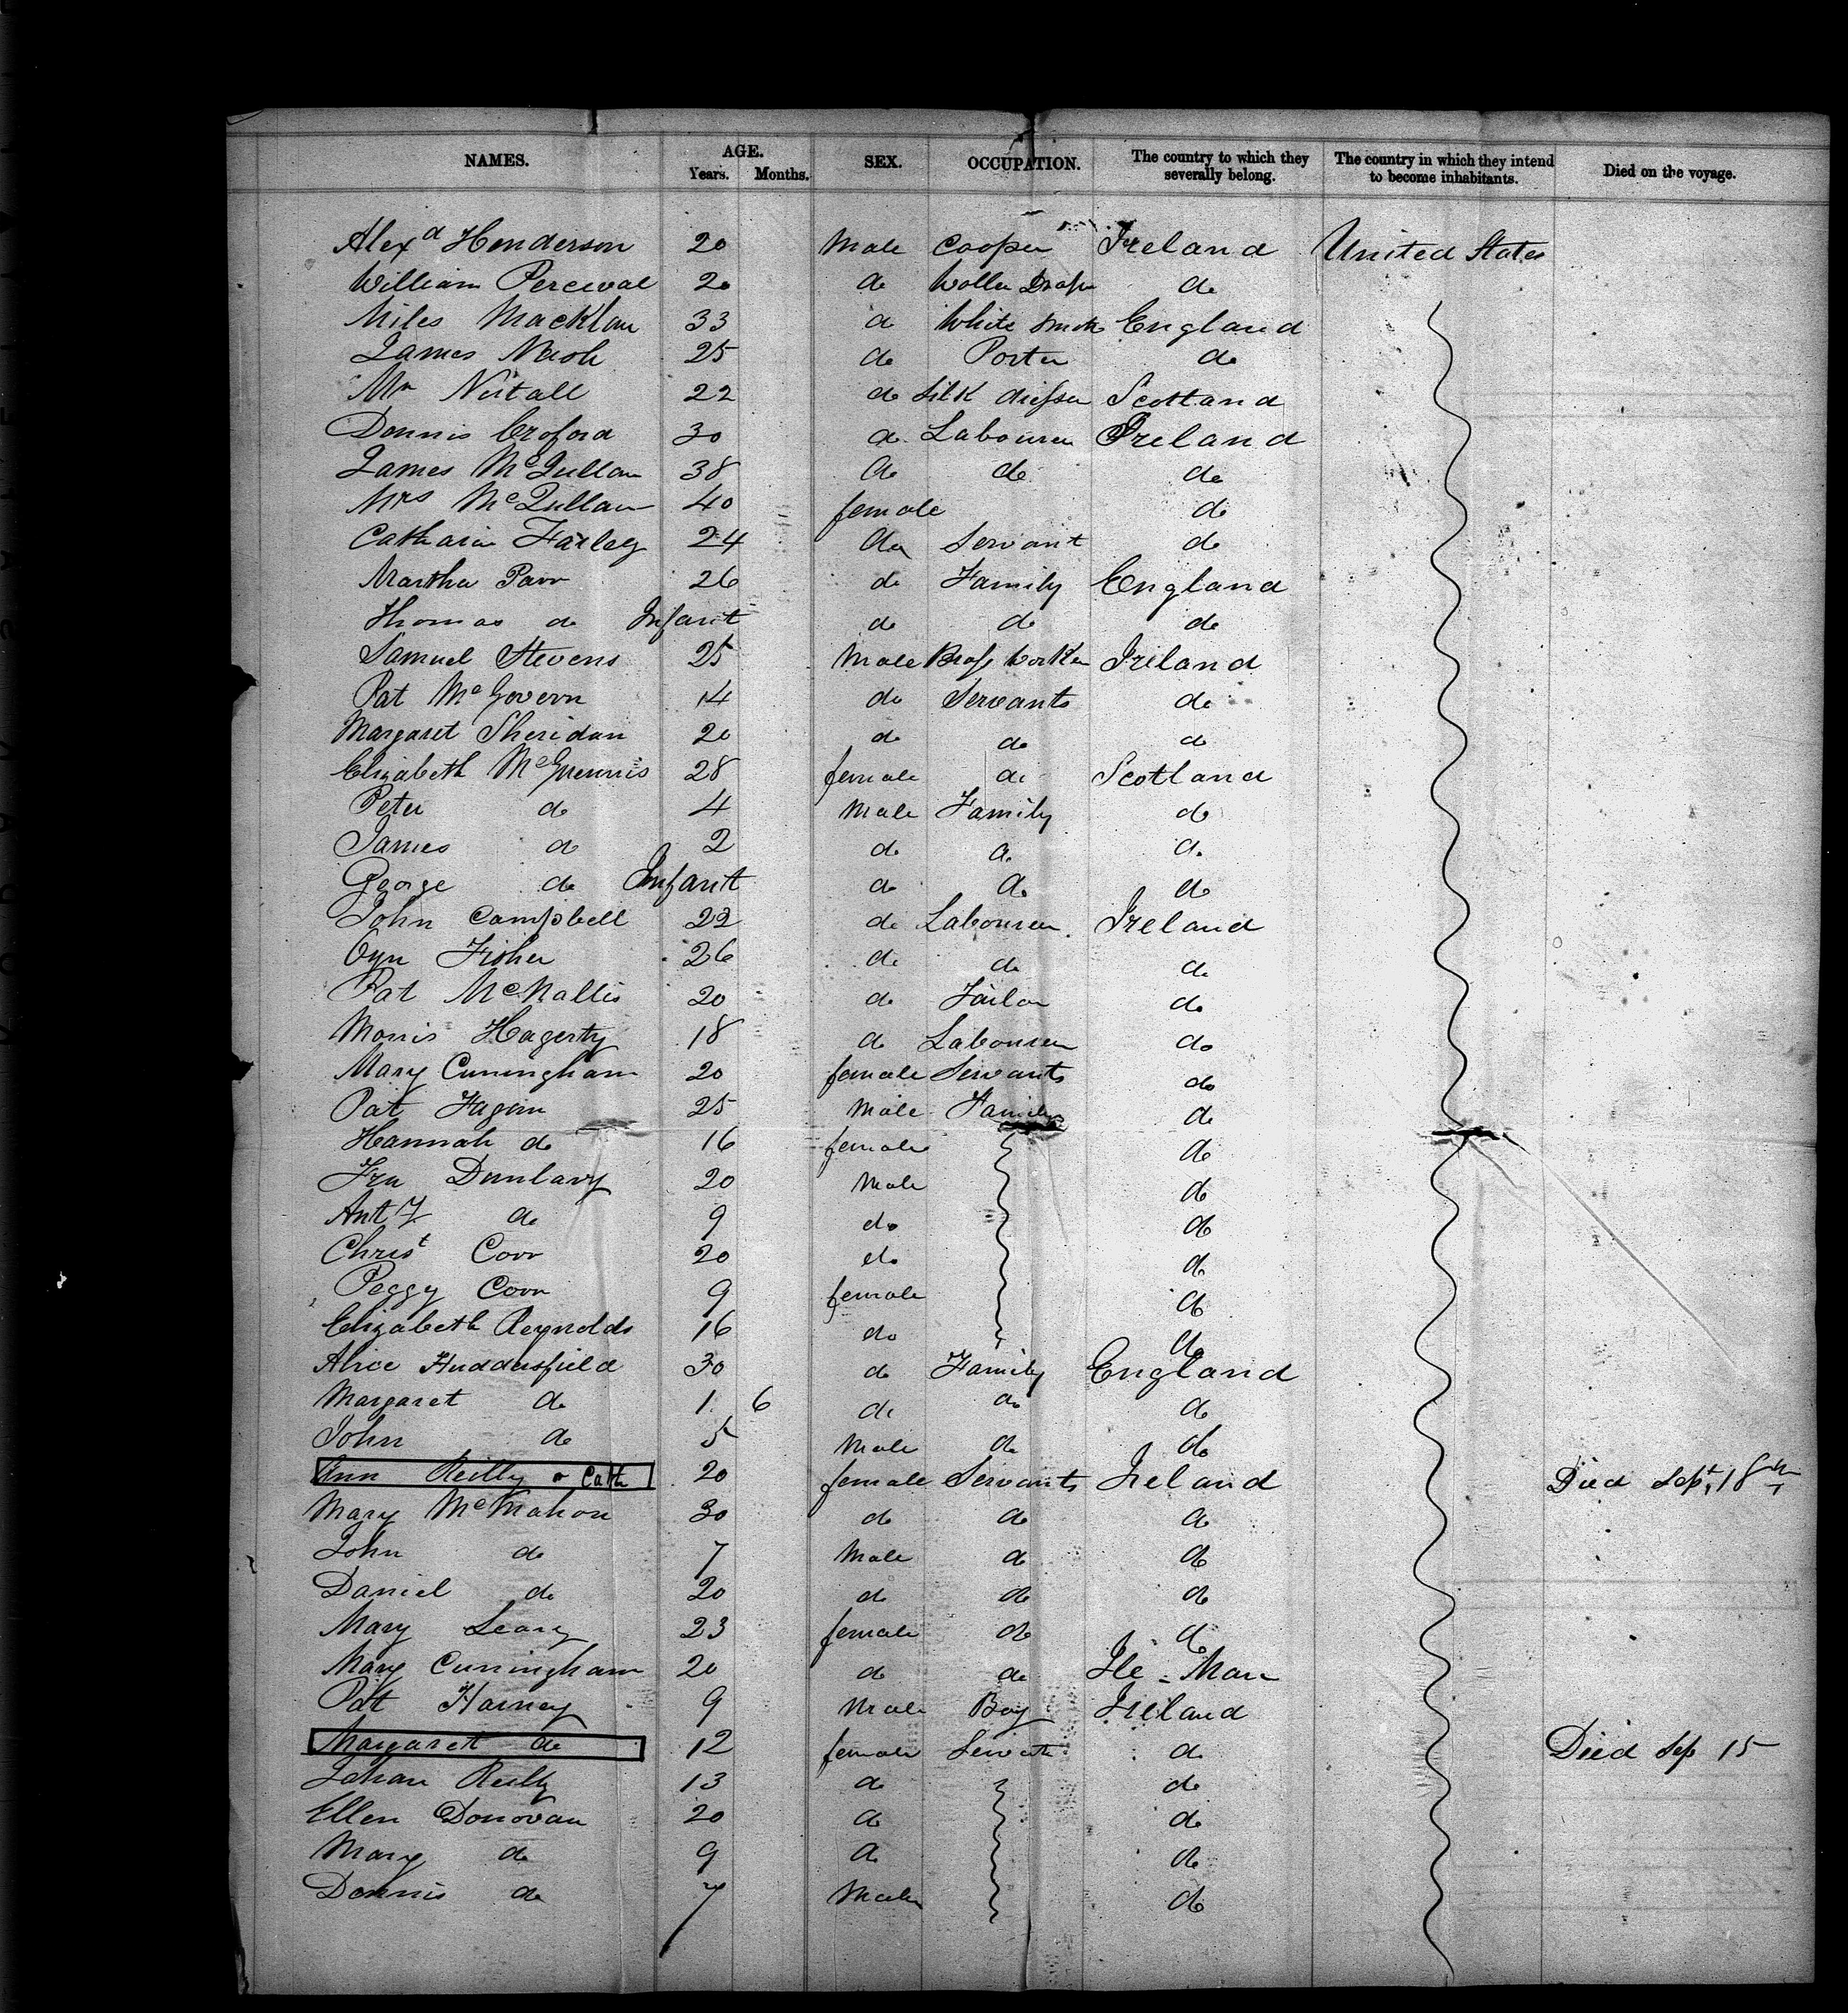 NAMES. AGE. Years. Months. SEX. OCCUPATION. The country to which they severally belong. The country in which they intend to become inhabitants. Died on the voyage.
Alexd Henderson 20 Male Cooper Ireland United States
William Perceval 20 do Wollen Draper do
Miles Macklan 33 do White Smith England
James Nash 25 do Porter do
Mr Nutall 22 do Silk dresser Scotland
Dennis Croford 30 do Labourer Ireland
James McQullan 38 do do do
Mrs McQullan 40 female do
Catharin Farley 24 do Servant do
Martha Parr 26 do Family England
Thomas do Infant do do do
Samuel Stevens 25 Male Brass Worker Ireland
Pat McGovern 14 do Servants do
Margaret Sheridan 20 do do do
Elizabeth McGuennis 28 female do Scotland
Peter do 4 Male Family do
James do 2 do do do
George do Infant do do do
John Campbell 22 do Labourer Ireland
Fisher 26 do do do
Pat McNallis 20 do Tailor do
Morris Hagerty 18 do Labourer do
Mary Cuningham 20 female Servants do
Pat Fagan 25 Male Family do
Hannah do 16 female do
Fra Dunlavy 20 Male do
Anty do 9 do do
Christ Corr 20 do do
Peggy Corr 9 female do
Elizabeth Reynolds 16 do do
Alice Huddersfield 30 do Family England
Margaret do 1 6 do do do
John do 5 Male do do
Ann Reilly or Cath 20 female Servants Ireland Died Sept 18th
Mary McMahon 30 do do do
John do 7 Male do do
Daniel do 20 do do do
Mary Leary 23 female do do
Mary Cuningham 20 do do Ile-Man
Pat Harney 9 Male Boy Ireland
Margaret do 12 female Servants do Died Sep 15
Reilly 13 do do
Ellen Donovan 20 do do
Mary do 9 do do
Dennis do 7 Male do